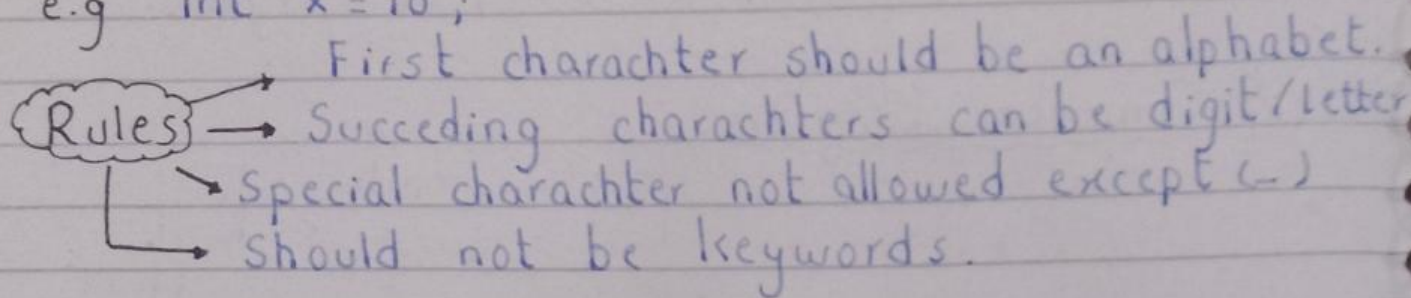 e.g int x = 10;
First charachter should be an alphabet.
Rules Succeding charachters can be digit/letter
Special charachter not allowed except (_)
Should not be keywords.